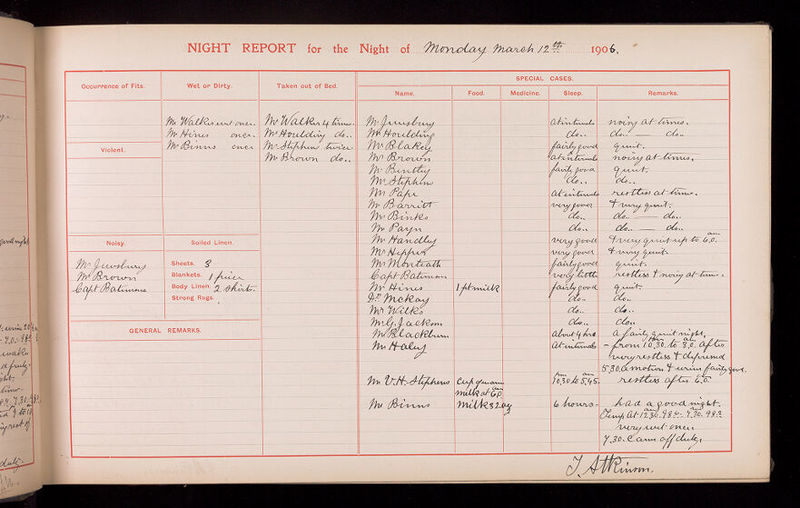 NIGHT REPORT for the Night of Monday March 12th 1906.
Occurrence of Fits.
Wet or Dirty.
Taken out of Bed.
SPECIAL CASES.
Name. Food. Medicine. Sleep. Remarks.
Mr Walker wet once.
Mr Hines once.
Mr Binns once
Mr Walker 4 times.
Mr Houlding do..
Mr Stephens twice
Mr Brown do..
Violent.
Noisy.
Mr Jewsbury
Mr Brown
Capt Bateman
Soiled Linen.
Sheets. 3
Blankets. 1 piece
Body Linen. 2 Shirts.
Strong Rugs.
GENERAL REMARKS.
Mr Jewsbury at intervals noisy at times.
Mr Houlding do.. do.. — do..
Mr Blakey fairly good quiet.
Mr Brown at intervals noisy at times.
Mr Bentley fairly good quiet.
Mr Stephens do.. do..
Mr Pape at intervals restless at times.
Mr Barritt very good & very quiet.
Mr Binks do.. do.. do..
Mr do.. do.. do..
Mr Handley very good & very quiet up to 6.0. am
Mr very good & very quiet.
Mr Monteath fairly good quiet.
Capt Bateman very little restless & noisy at times.
Mr Hines 1 pt milk fairly good quiet.
Dr McKay do.. do..
Mr Wilks do.. do..
Mr G. Jackson do.. do..
Mr Blackburn about 4 hrs a fairly quiet night,
Mr Haley at intervals - from 10.30. to 3.0. after
very restless & depressed
5.30. a motion & urine fairly good.
Mr V.H. Stephens Cup 10.30 to 5.45. restless after 6.0.
milk at 6.0
Mr Binns milk 32 oz 6 hours - had a good night.
Temp at 12.30. 98.4. 7.30. 98.2
very wet once.
7.30. came off duty.
T. Atkinson.